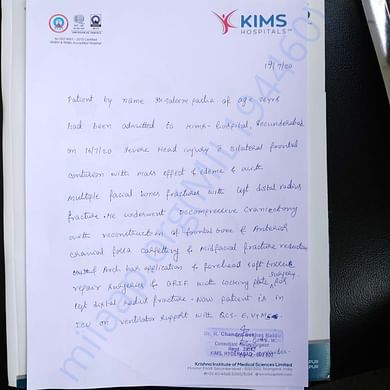 KIMS
HOSPITALS
19/7/20
Patient by name Mr. Saleem pasha of age 26yrs
had been admitted to KIMS-hospital, Secunderabad
on 14/7/20 severe Head injury & Bilateral frontal
contusion with mass effect & edema & with
multiple facial bones fractures with left distal radius
fracture. He underwent Decompressive Craniectomy
with reconstruction of frontal bone & Anterior
cranial fossa carpetting & midfacial fracture reduction
Arch bar application & forehead soft tissue
repair surgeries & ORIF with locking plate for
left distal radius fracture surgery. Now patient is in
ICU on ventilator support with GCS- E1VTM5
Consultant Neuro Surgeon
KIMS, HYDERABAD
Krishna Institute of Medical Sciences Limited
milaap.org